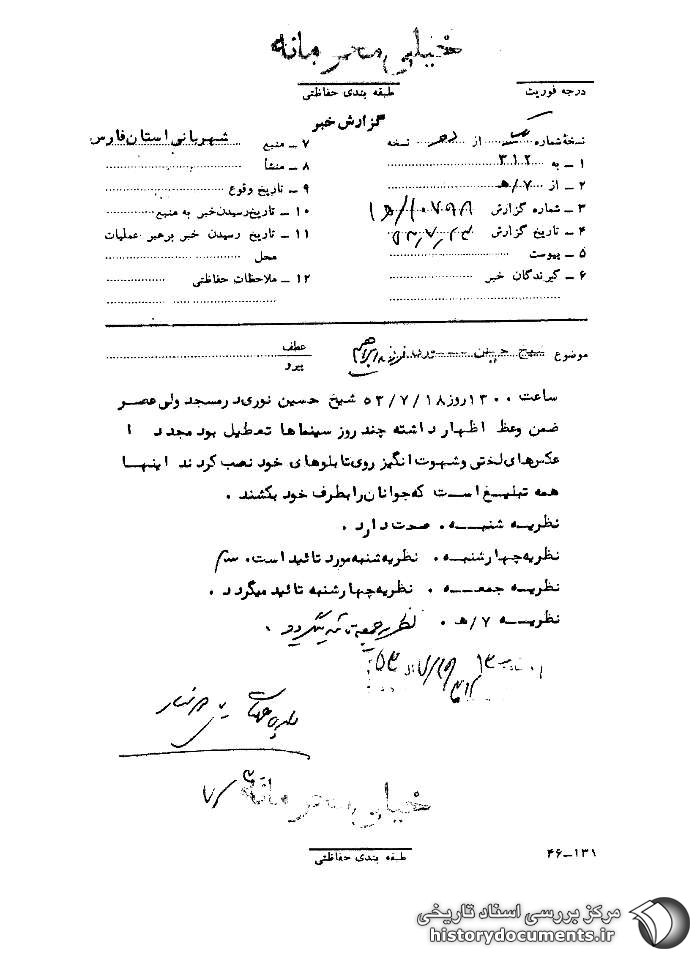 خیلی محرمانه
درجه فوریت
طبقه بندی حفاظتی
گزارش خبر
نسخهٔ شماره از نسخه
۱ ـ به ۳۱۲
۲ ـ از ۷/هـ
۳ ـ شماره گزارش
۴ ـ تاریخ گزارش
۵ ـ پیوست
۶ ـ گیرندگان خبر
۷ ـ منبع شهربانی استان فارس
۸ ـ منشأ
۹ ـ تاریخ وقوع
۱۰ ـ تاریخ رسیدن خبر به منبع
۱۱ ـ تاریخ رسیدن خبر برهبر عملیات
محل
۱۲ ـ ملاحظات حفاظتی
موضوع شیخ حسین نوری فرزند ابراهیم
عطف
پیرو
ساعت ۱۳۰۰ روز ۵۳/۷/۱۸ شیخ حسین نوری در مسجد ولی عصر
ضمن وعظ اظهار داشته چند روز سینماها تعطیل بود مجدد ا
عکس‌های لختی و شهوت انگیز روی تابلوهای خود نصب کردند اینها
همه تبلیغ است که جوانان را بطرف خود بکشند .
نظریه شنبه . صحت دارد .
نظریه چهارشنبه . نظریه شنبه مورد تائید است.
نظریه جمعه . نظریه چهارشنبه تائید میگردد .
نظریه ۷/هـ . نظریه جمعه تائید میگردد .
خیلی محرمانه
طبقه بندی حفاظتی
۴۶-۱۳۱
مرکز بررسی اسناد تاریخی
historydocuments.ir